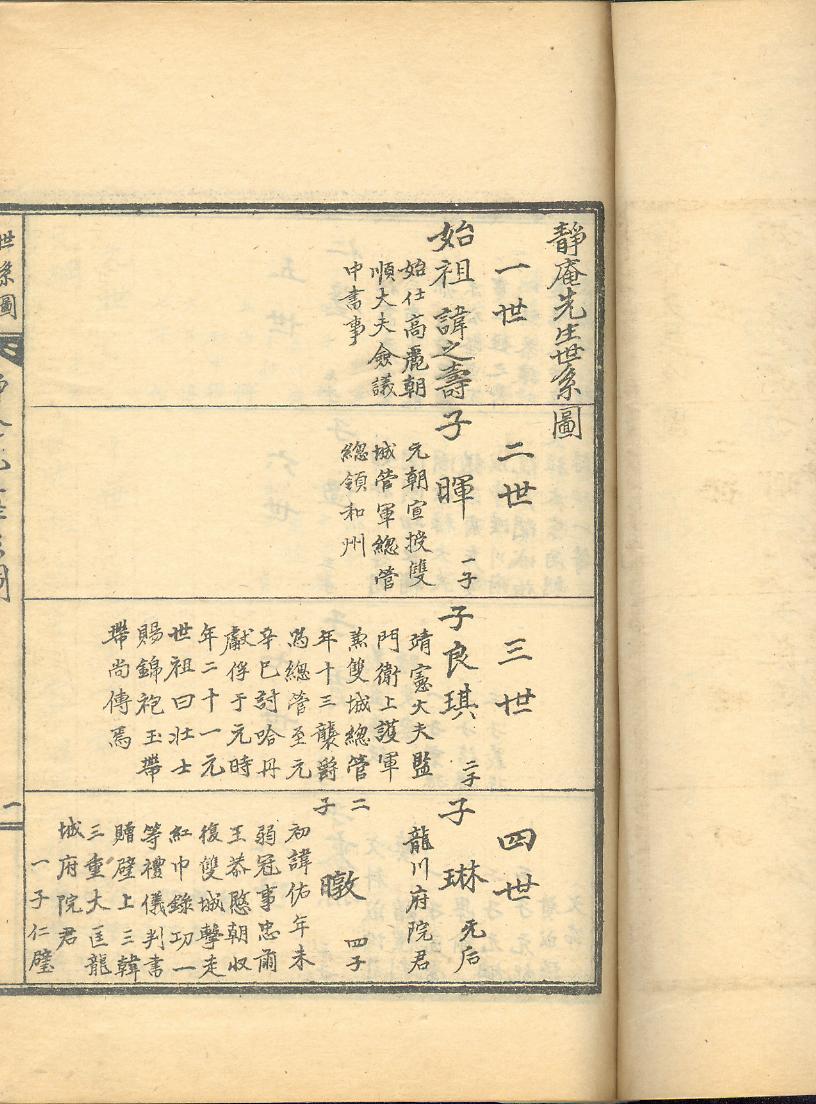 靜庵先生世系圖
一世
始祖諱之壽
始仕高麗朝
順大夫僉議
中書事
二世
子暉 一子
元朝宣授雙
城管軍總管
總領和州
三世
子良琪 二子
靖憲大夫監
門衛上護軍
兼雙城總管
年十三襲爵
爲總管至元
辛巳討哈丹
獻俘于元時
年二十一元
世祖曰壯士
賜錦袍玉帶
帶尚傳焉
四世
子琳 无后
龍川府院君
二子暾 四子
初諱佑年未
弱冠事忠肅
王恭愍朝收
復雙城擊走
紅巾錄功一
等禮儀判書
贈壁上三韓
三重大匡龍
城府院君
一子仁璧
世系圖
一